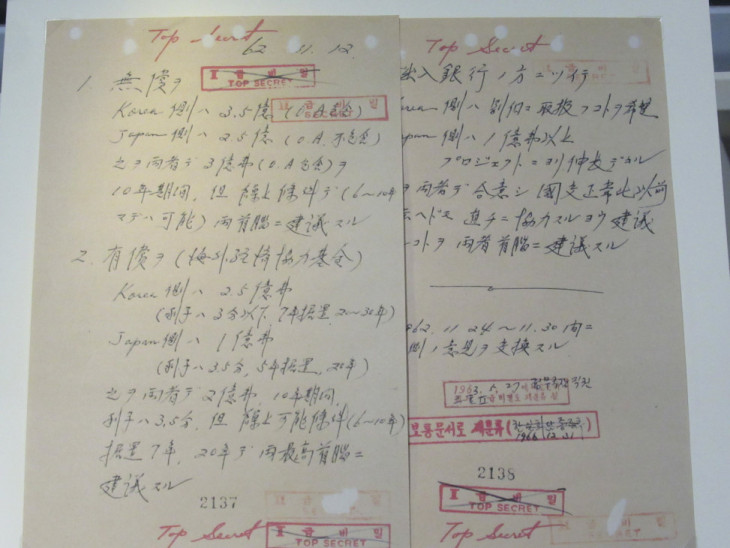 Top Secret
62. 11. 12.
TOP SECRET
1. 無償ヲ
Korea側ハ 3.5億 (O.A包含)
Japan側ハ 2.5億 (O.A.不包含)
之ヲ両者デ3億弗(O.A包含)ヲ
10年期間, 但 繰上條件デ(6~10年
マデハ可能) 両首脳ニ建議スル
2. 有償ヲ (海外経済協力基金)
Korea側ハ 2.5億弗
(利子ハ3分以下, 7年据置, 20~30年)
Japan側ハ 1億弗
(利子ハ3.5分, 5年据置, 20年)
之ヲ両者デ2億弗, 10年期間,
利子ハ3.5分, 但 繰上可能條件(6~10年)
据置7年, 20年デ両最高首脳ニ
建議スル
2137
I급비밀
TOP SECRET
Top Secret
Top Secret
入銀行ノ方ニツイテ
側ハ別個ニ取扱フコトヲ希望
側ハ1億弗以上
プロジェクトニヨリ伸長デカル
両者デ合意シ国交正常化以前
直チニ協力スルヨウ建議
コトヲ両者首脳ニ建議スル
1962. 11. 24~11.30 間ニ
側ノ意見ヲ交換スル
보통문서로 재분류
1966. 12. 31
2138
I급비밀
TOP SECRET
Top Secret